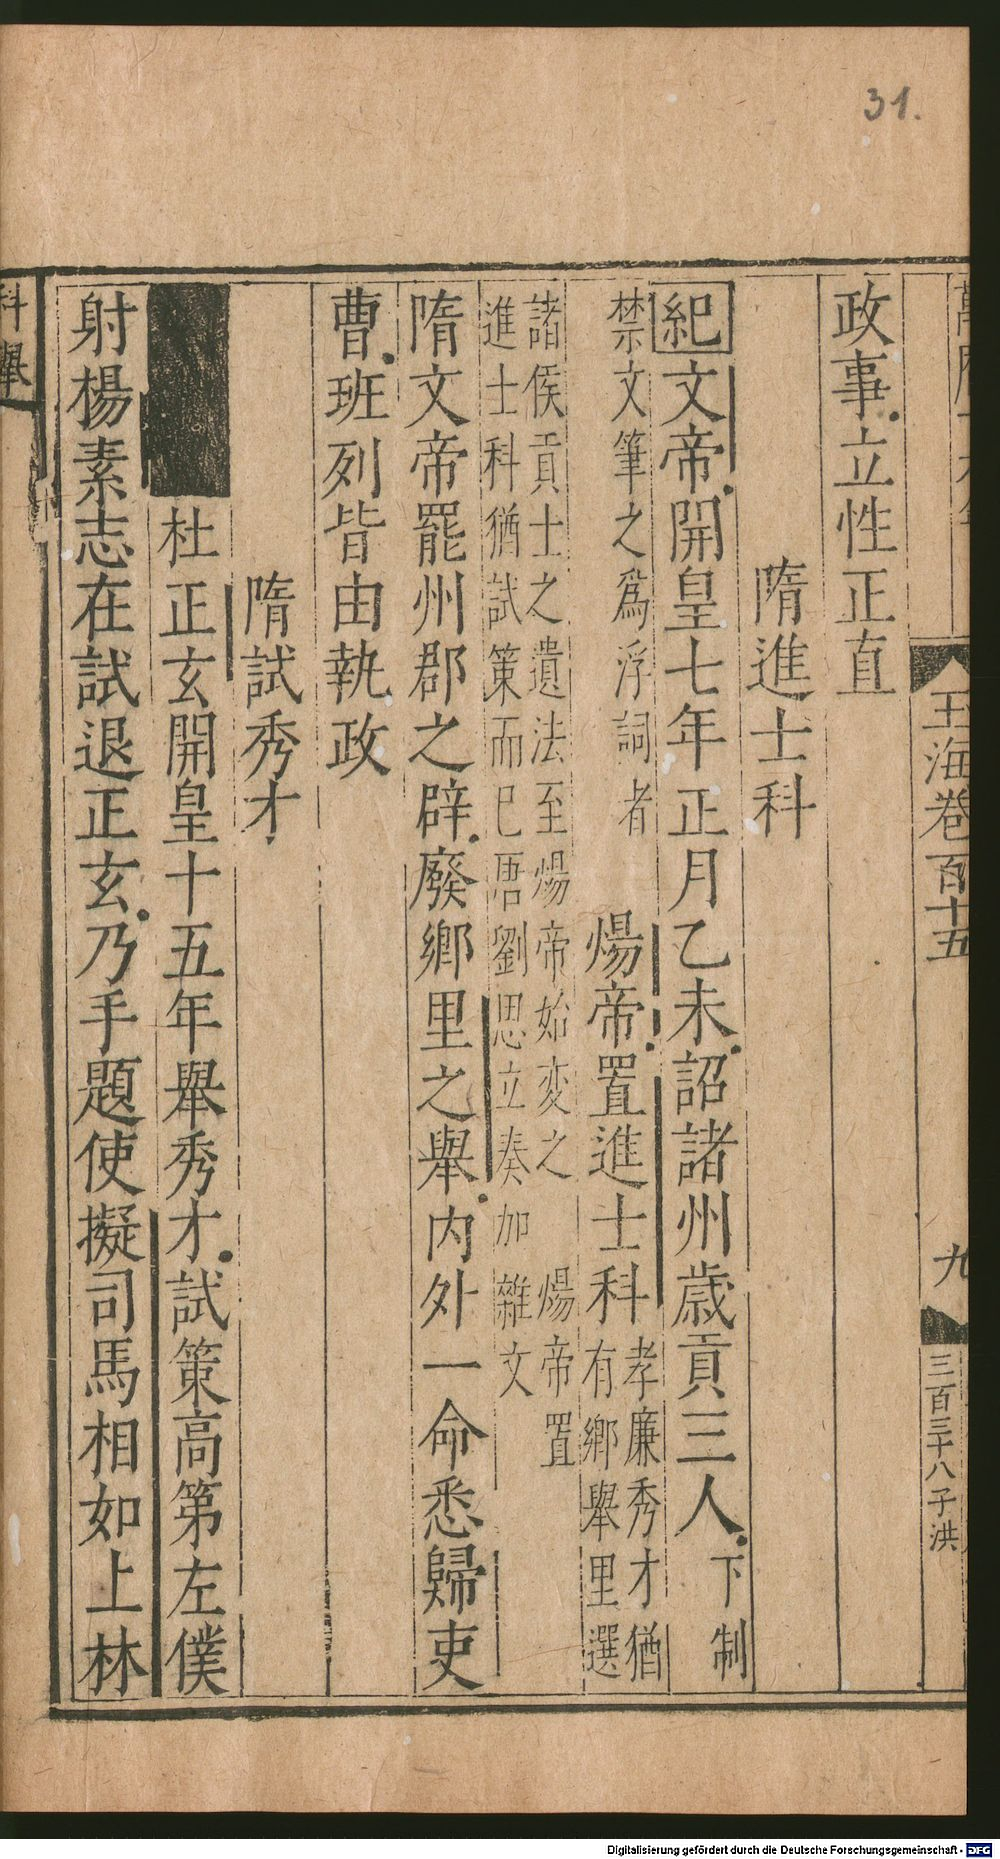 31.
玉海卷百十五
九
三百三十八子洪
政事立性正直
隋進士科
紀文帝開皇七年正月乙未詔諸州歲貢三人下制
禁文筆之爲浮詞者煬帝置進士科孝廉秀才猶有鄉舉里選
諸侯貢士之遺法至煬帝始変之煬帝置
進士科猶試策而已唐劉思立奏加雜文
隋文帝罷州郡之辟廢鄉里之舉内外一命悉歸吏
曹班列皆由執政
隋試秀才
杜正玄開皇十五年舉秀才試策高第左僕
射楊素志在試退正玄乃手題使擬司馬相如上林
科舉
Digitalisierung gefördert durch die Deutsche Forschungsgemeinschaft - DFG